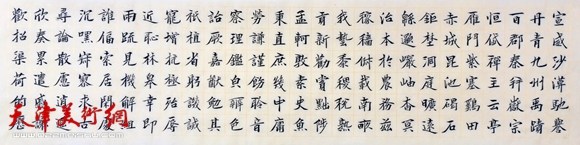 宣威沙漠馳譽
丹青九州禹跡
百郡秦并嶽宗
恒岱禪主云亭
雁門紫塞雞田
赤城昆池碣石
鉅埜洞庭曠遠
緜邈巖岫杳冥
治本於農務茲
稼穡俶載南畝
我藝黍稷稅熟
貢新勸賞黜陟
孟軻敦素史魚
秉直庶幾中庸
勞謙謹勑聆音
察理鑑貌辨色
貽厥嘉猷勉其
祗植省躬譏誡
寵增抗極殆辱
近恥林皋幸即
兩疏見機解組
誰逼索居閒處
沉默寂寥求古
尋論散慮逍遙
欣奏累遣慼謝
歡招渠荷的歷
天津美術網